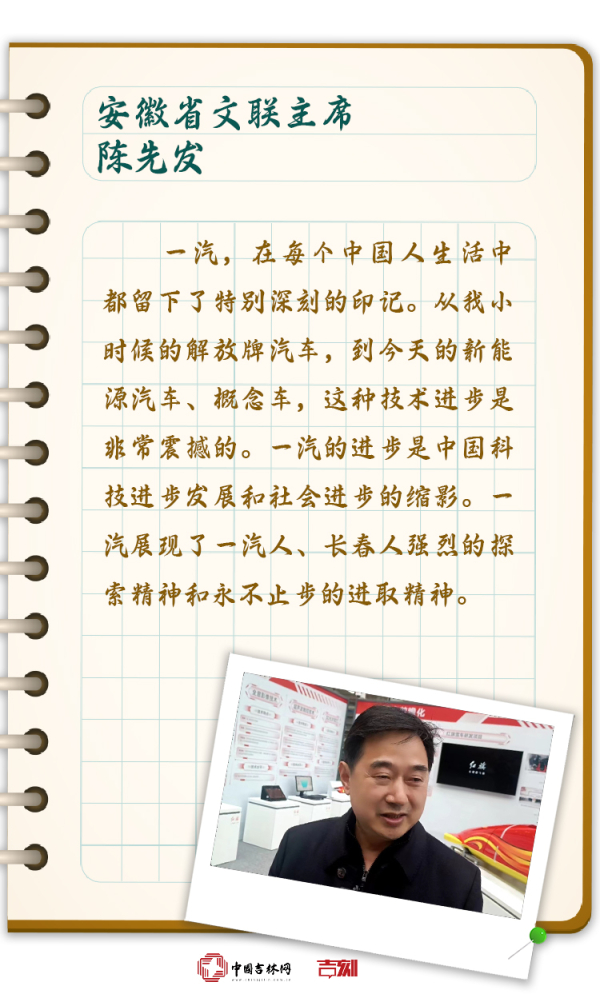 安徽省文联主席
陈先发
一汽，在每个中国人生活中
都留下了特别深刻的印记。从我小
时候的解放牌汽车，到今天的新能
源汽车、概念车，这种技术进步是
非常震撼的。一汽的进步是中国科
技进步发展和社会进步的缩影。一
汽展现了一汽人、长春人强烈的探
索精神和永不止步的进取精神。
红旗
中国吉林网
吉刻